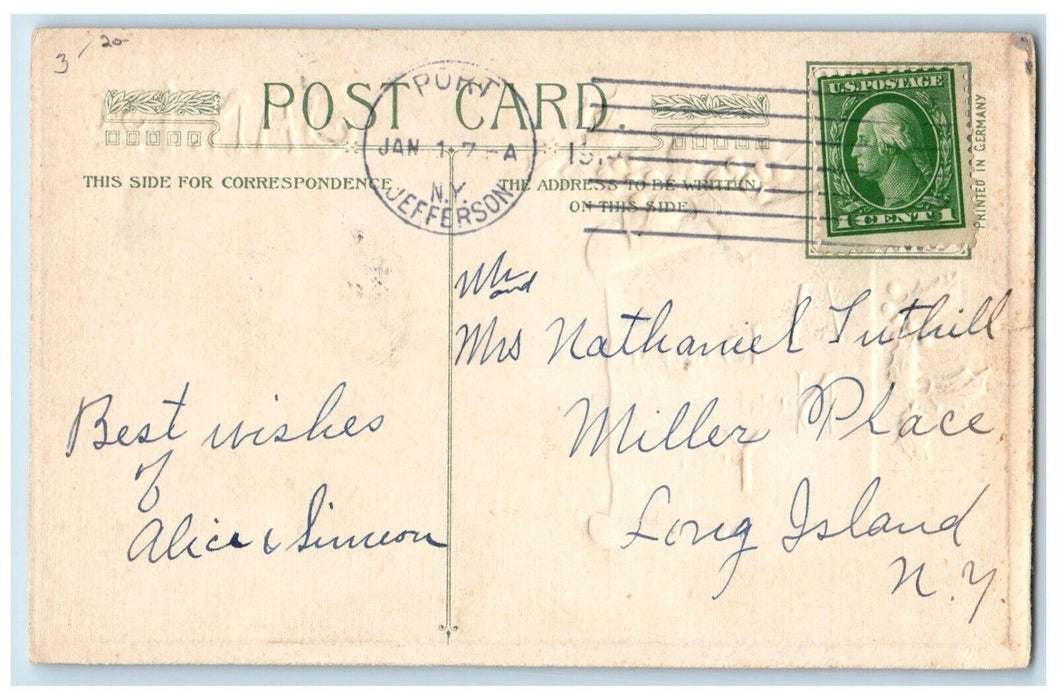 3 / 20-
POST CARD.
U.S. POSTAGE
1 CENT 1
PRINTED IN GERMANY
PORT
JAN 1 7-A
N.Y.
JEFFERSON
THIS SIDE FOR CORRESPONDENCE
THE ADDRESS TO BE WRITTEN
ON THIS SIDE
Mr
and
Mrs Nathaniel Tuthill
Miller Place
Long Island
N.Y
Best wishes
of
Alice & Simeon